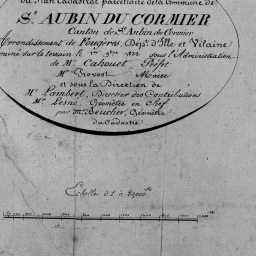 du Plan Cadastral parcellaire de la Commune de
St. AUBIN DU CORMIER
Canton de St. Aubin du Cormier
Arrondissement de Fougères, Dépt. d'Ille et Vilaine
miné sur le terrain le 1er sous l'Administration
de Mr. Cahouet Préfet
Mr. Provost Maire
et sous la Direction de
Mr. Lambert, Directeur des Contributions
Mr. Lesné, Géomètre en Chef
par Mr. Boucher, Géomètre
du Cadastre
Echelle de 1 à